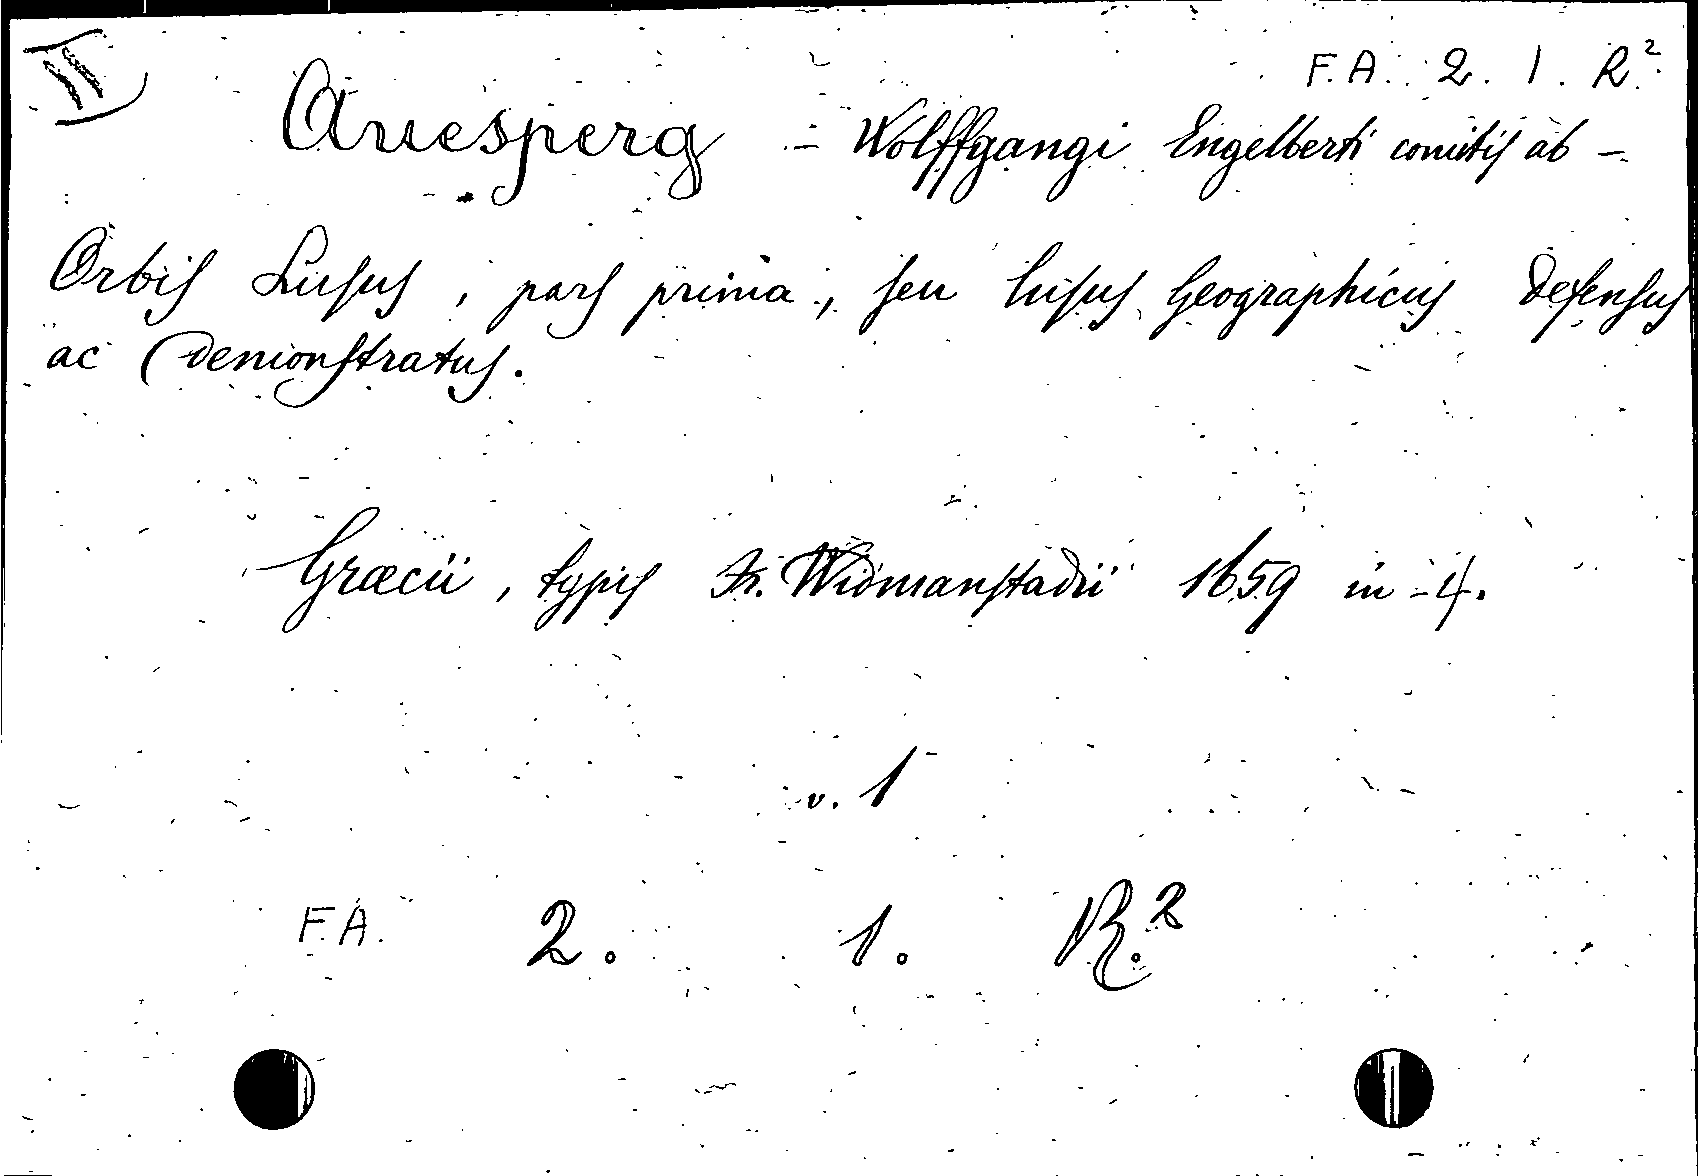 II
F. A. 2. 1. R.²
Auesperg - Wolffgangi Engelberti comitis ab -
Orbis Lusus, pars prima, seu lusus geographicus defensus
ac demonstratus.
Græcii, typis Fr. Widmanstadii 1659 in -4.
v. 1
F. A. 2. 1. R.²